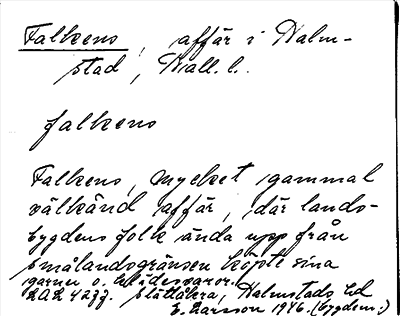 Falkens, affär i Halm-
stad, Hall. l.
falkens
Falkens, mycket gammal
välkänd affär, där lands-
bygdens folk ända upp från
smålandsgränsen köpte sina
garner o. klädesvaror.
Slättåkra, Halmstads hd
E. Larsson 1946. (bygdem:)